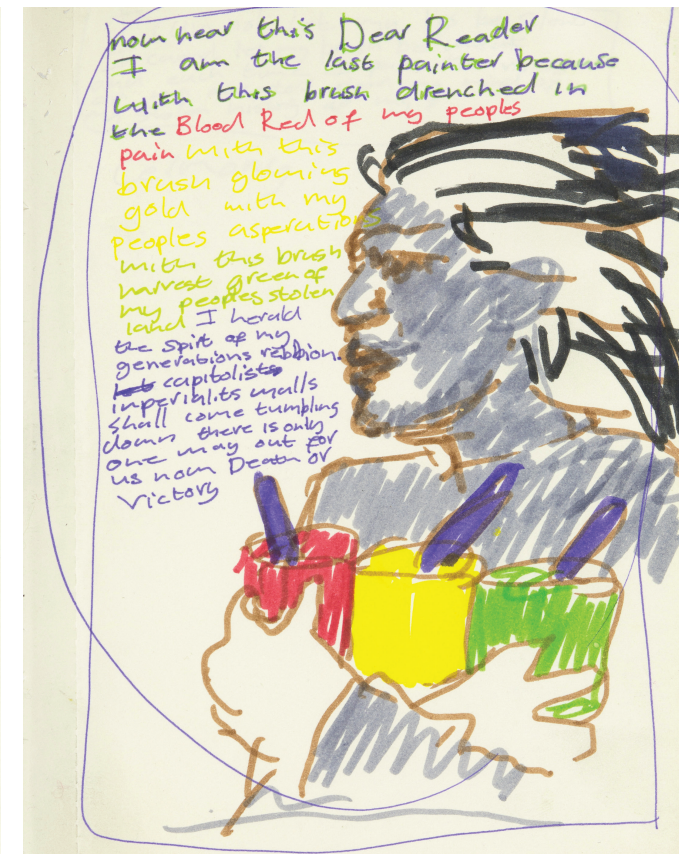 now hear this Dear Reader
I am the last painter because
with this brush drenched in
the Blood Red of my peoples
pain with this
brush glowing
gold with my
peoples asperations
with this brush
harvest green of
my peoples stolen
land I herald
the spirt of my
generations rebbion
capitolists
imperialits walls
shall come tumbling
down there is only
one way out for
us now Death or
Victory